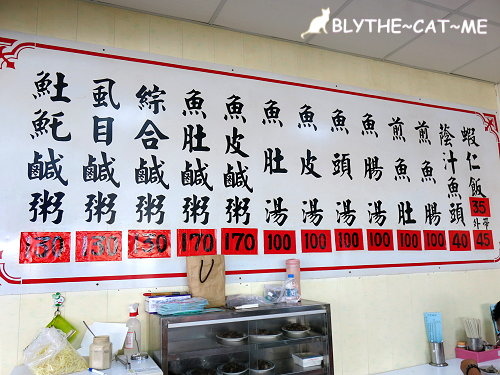 BLYTHE~CAT~ME
蝦仁飯
35
外帶
45
蔭汁魚頭
40
煎魚腸
100
煎魚肚
100
魚腸湯
100
魚頭湯
100
魚皮湯
100
魚肚湯
100
魚皮鹹粥
170
魚肚鹹粥
170
綜合鹹粥
虱目鹹粥
130
魠鹹粥